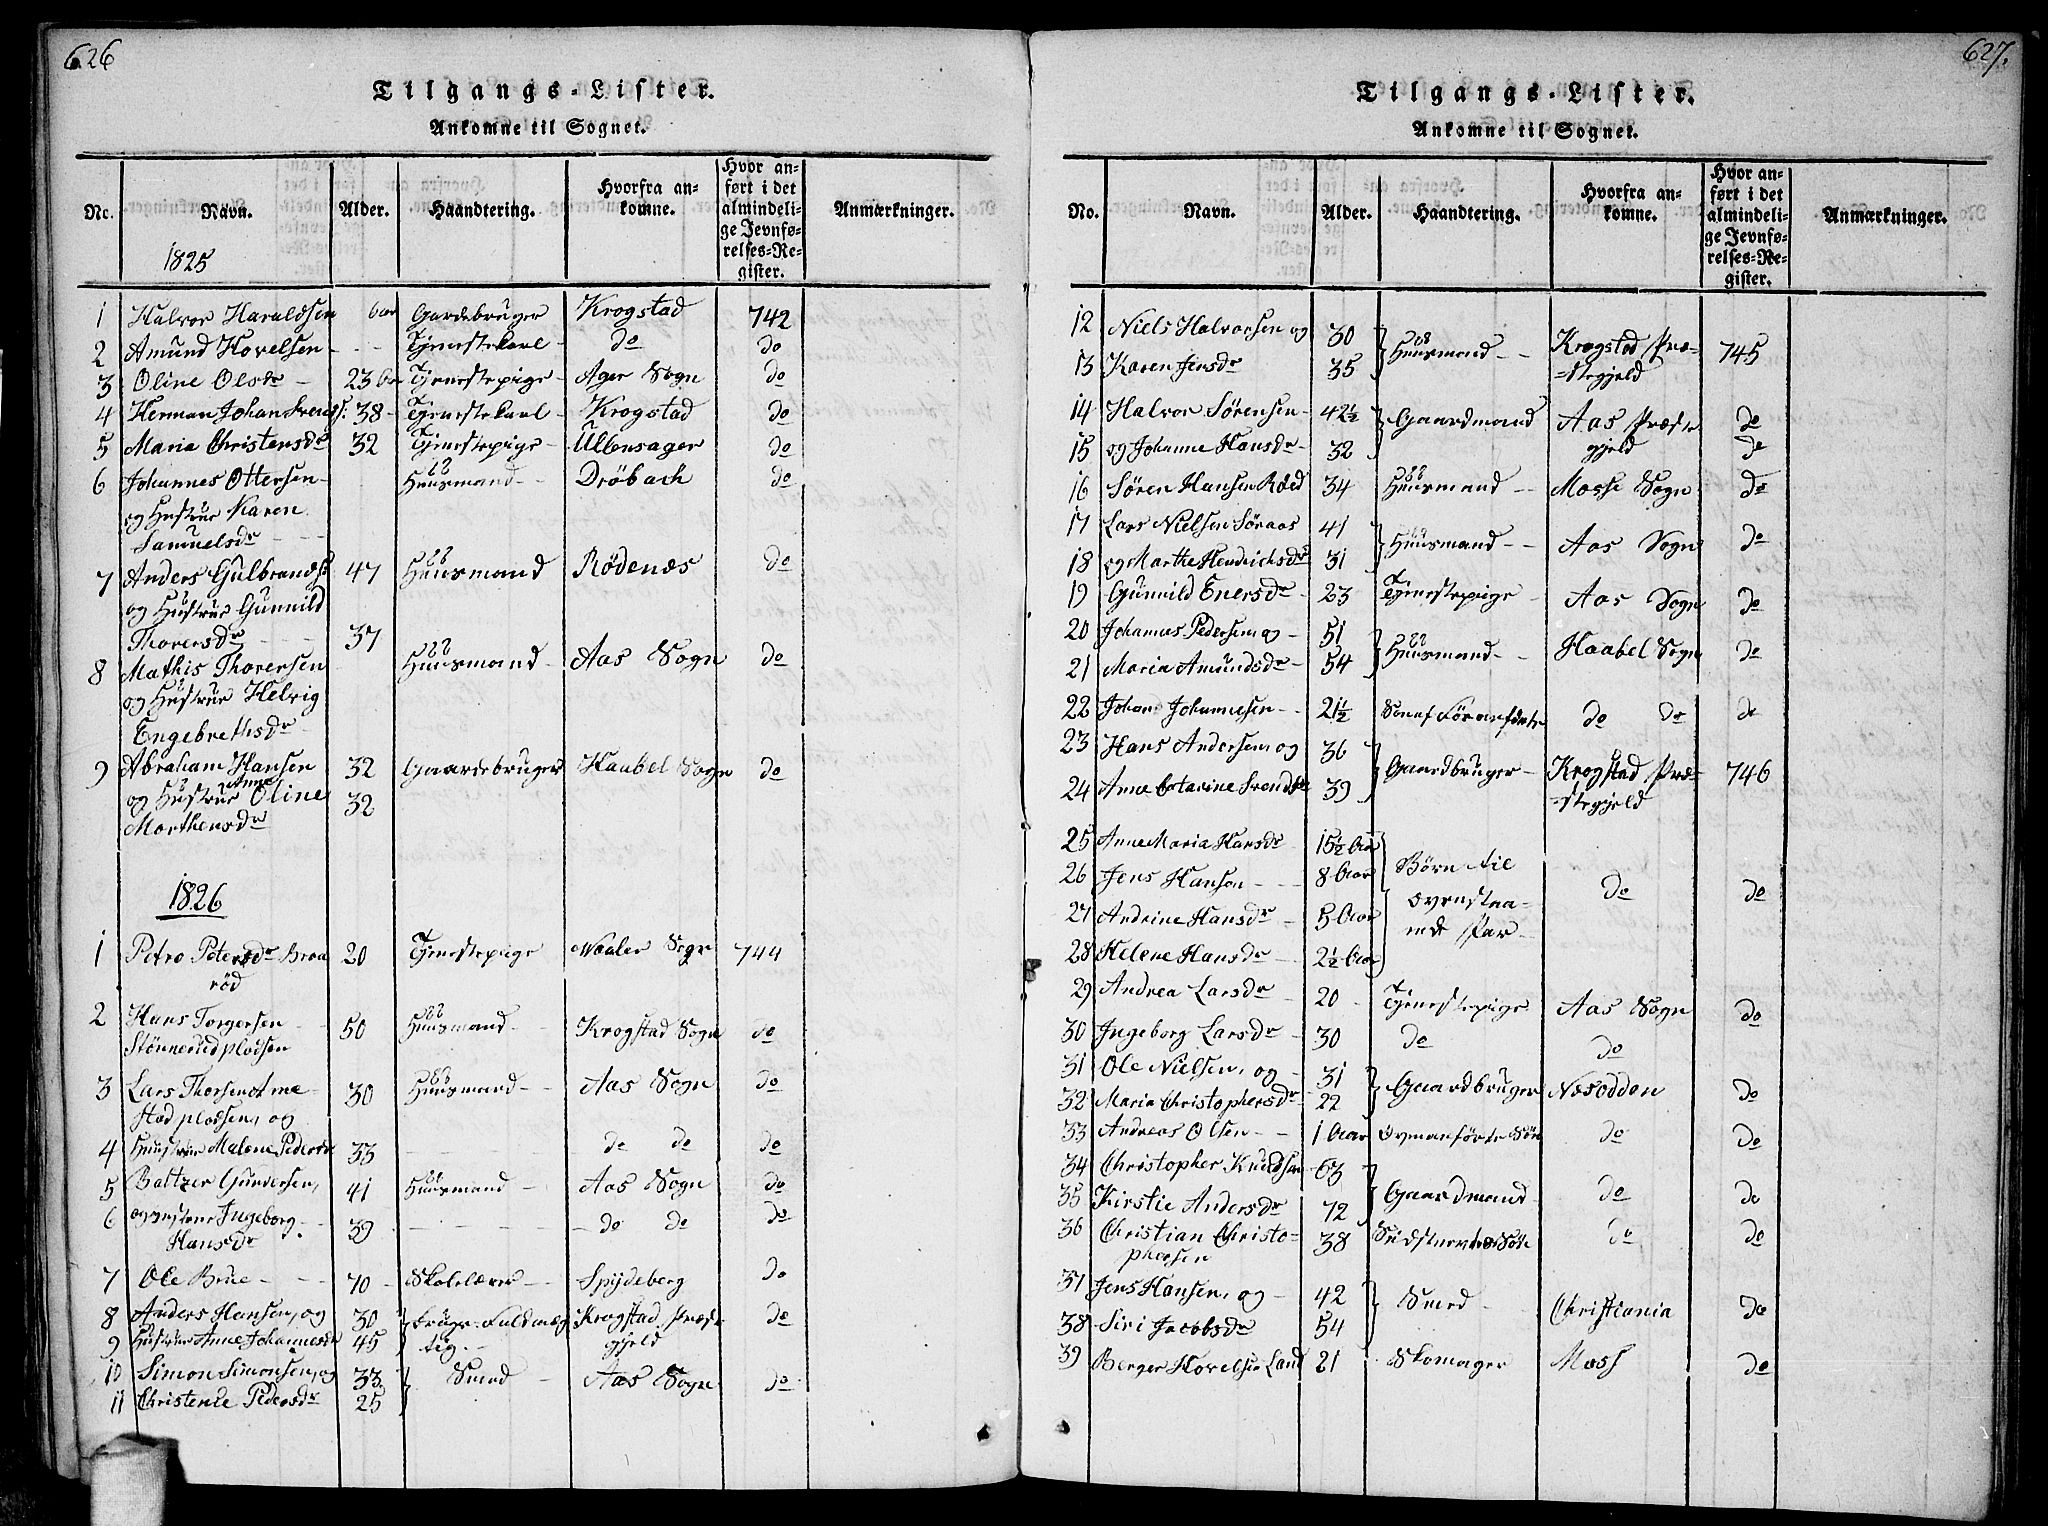 626
Tilgangs-Lister.
Ankomne til Sognet.
No. Navn. Alder. Haandtering. Hvorfra ankomne. Hvor anført i det almindelige Jevnførelses-Register. Anmærkninger.
1825
1 Halvor Haraldsen Gardebruger Krogstad 742
2 Amund Hovelsen - - - Tjenestekarl - do do
3 Oline Olsdr - 23 Tjenestepige - Ager Sogn do
4 Herman Johan Svends: 38 - Tjenestekarl - Krogstad do
5 Maria Christensdr 32 Tjenestepige - Ullensager do
6 Johannes Ottersen - Huusmand - - Dröbach do
og Hustrue Karen
Samuelsdr - - -
7 Anders Gulbrands: 47 Huusmand Rödenæs do
og Hustrue Gunnild
Thorersdr - - - 37
8 Mathis Thorersen Huusmand - Aas Sogn do
og Hustrue Helvig
Engebrethsdr -
9 Abraham Hansen 32 Gaardebruger Haabel Sogn do
og Hustrue Anne Oline 32
Morthensdr
1826
1 Petro Petersdr Braa 20 Tjenestepige Waaler Sogn 744
röd
2 Hans Torgersen - 50 Huusmand - - Krogstad Sogn do
Stönnerudpladsen
3 Lars Thorsen 30 Huusmand - - Aas Sogn do
stad pladsen, og
4 Huustrue Malene Pedersdr 33 - - - do do do
5 Baltzer Gundersen, 41 Huusmand - Aas Sogn do
6 Ingeborg - 39 - - - do do do
Hansdr
7 Ole Brue - - - 70 - Skolelærer - Spydeberg do
8 Anders Hansen, og 30 Krogstad Præste do
9 Hustrue Anne Johannesdr 45 tig. - gjeld
10 Simon Simonsen, og 33 Smed - Aas Sogn do
11 Christence Pedersdr 25
627.
Tilgangs-Lister.
Ankomne til Sognet.
No. Navn. Alder. Haandtering. Hvorfra ankomne. Hvor anført i det almindelige Jevnførelses-Register. Anmærkninger.
12 Niels Halvorsen og 30 Huusmand - - Krogstad Præ= 745
13 Karen Jensdr 35 =stegjeld
14 Halvor Sörensen - 42½ Gaardmand Aas Præste do
15 og Johanne Hansdr - 32 gjeld do
16 Sören Hansen Röed 34 Huusmand - - Mosse Sogn do
17 Lars Nielsen Söraas 41 Huusmand - - Aas Sogn do
18 og Marthe Hendrichsdr 31
19 Gunnild Enersdr - 23 Tjenestepige - Aas Sogn do
20 Johannes Pedersen og - 51 Huusmand - - Haabel Sogn do
21 Maria Amundsdr - 54
22 Johan Johannesen - - 21½ do do do
23 Hans Andersen, og 36 Gaardbruger - Krogstad Præ= 746
24 Anne Catarine Svendsdr 39 =stegjeld
25 Anne Maria Hansdr - 15½ Aar Børn til
26 Jens Hansen - - - 8 Aar ovenstaa-
27 Andrine Hansdr - 5 Aar ende Par - do do
28 Helene Hansdr - - 2½ Aar
29 Andrea Larsdr - 20 - Tjenestepige Aas Sogn do
30 Ingeborg Larsdr - 30 do do
31 Ole Nielsen, og - 31 Gaardbruger Næsodden do
32 Maria Christophersdr - 22
33 Andreas Olsen - - 1 Aar ovenanførte Sön do do
34 Christopher Knudsen 63 Gaardmand do do
35 Kirstie Andersdr - 72
36 Christian Christo- 38 do do
phersen
37 Jens Hansen, og - 42 Smed - Christiania do
38 Siri Jacobsdr - 54
39 Berger Hovelsen Land 21 Skomager Moss do